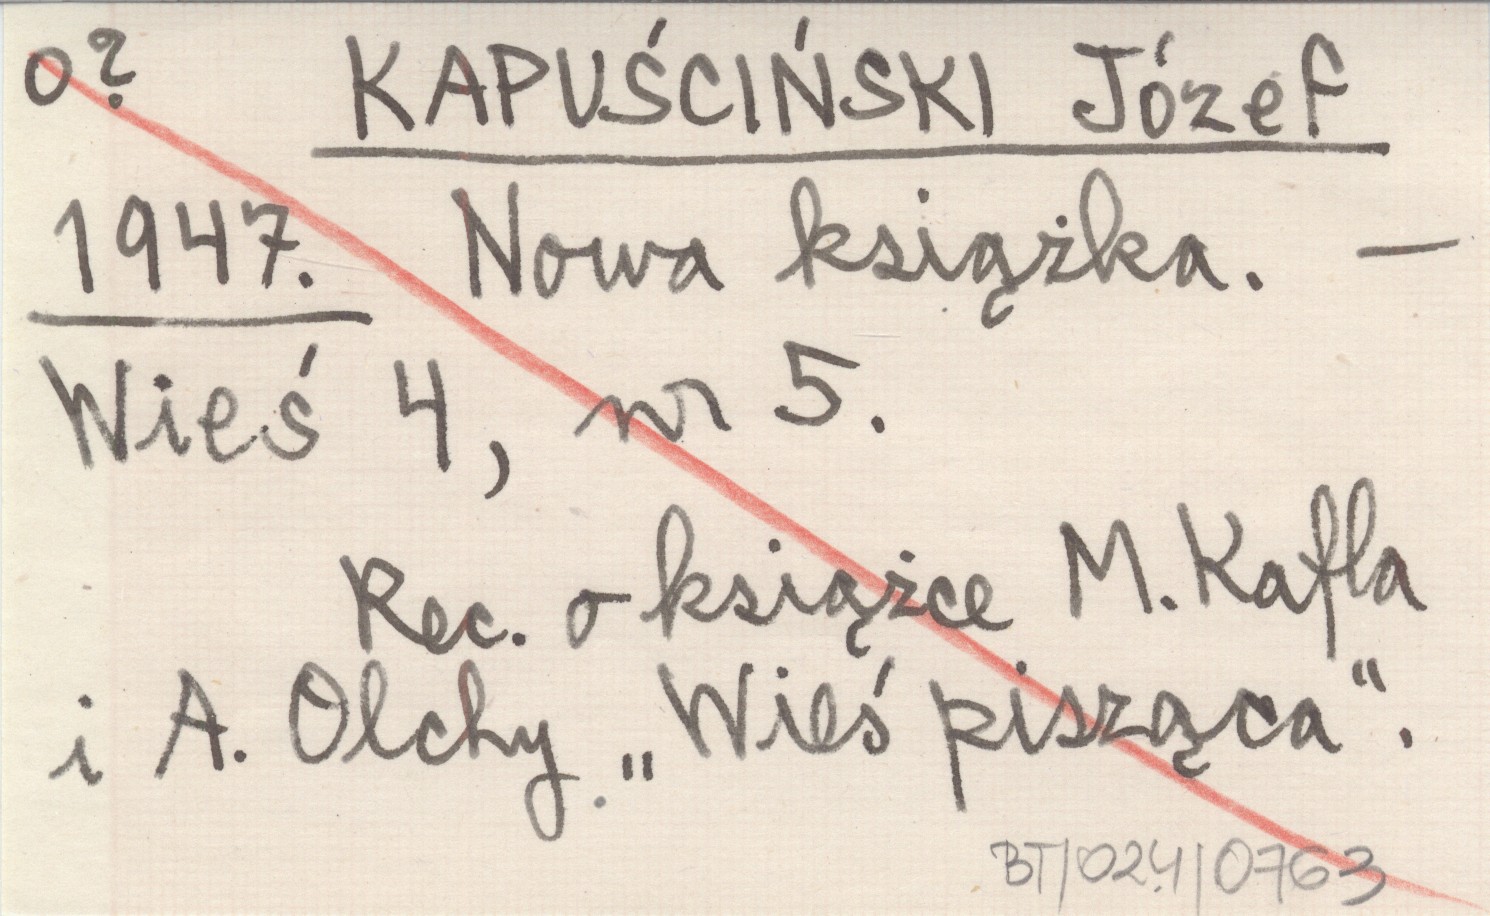 o? KAPUŚCIŃSKI Józef
1947. Nowa książka. —
Wieś 4, nr 5.
Rec. o książce M. Kafla
i A. Olchy. „Wieś pisząca“.
BT/024/0763